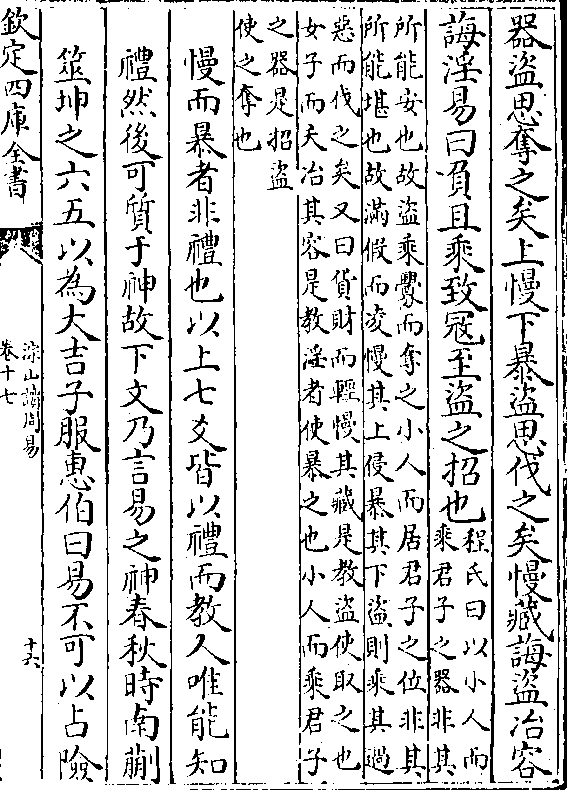 器盜思奪之矣上慢下暴盜思伐之矣慢藏誨盜冶容
誨淫易曰負且乘致寇至盜之招也
程氏曰以小人而
乘君子之器非其
所能安也故盜乘釁而奪之小人而居君子之位非其
所能堪也故滿假而凌慢其上侵暴其下盜則乘其過
惡而伐之矣又曰貨財而輕慢其藏是教盜使取之也
女子而夭冶其容是教淫者使暴之也小人而乘君子
之器是招盜
使之奪也
慢而暴者非禮也以上七爻皆以禮而教人唯能知
禮然後可質于神故下文乃言易之神春秋時南蒯
筮坤之六五以為大吉子服惠伯曰易不可以占險
欽定四庫全書
讀周易
卷十七
十六